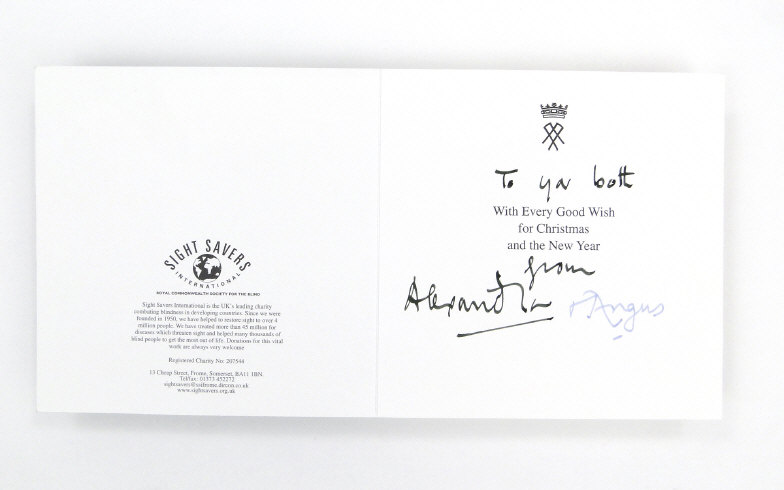 SIGHT SAVERS
INTERNATIONAL
ROYAL COMMONWEALTH SOCIETY FOR THE BLIND
Sight Savers International is the UK's leading charity
combating blindness in developing countries. Since we were
founded in 1950, we have helped to restore sight to over 4
million people. We have treated more than 45 million for
diseases which threaten sight and helped many thousands of
blind people to get the most out of life. Donations for this vital
work are always very welcome
Registered Charity No: 207544
13 Cheap Street, Frome, Somerset, BA11 1BN
Tel/fax: 01373 452272
www.sightsavers.org.uk
To you both
With Every Good Wish
for Christmas
and the New Year
from
Alexandra + Angus